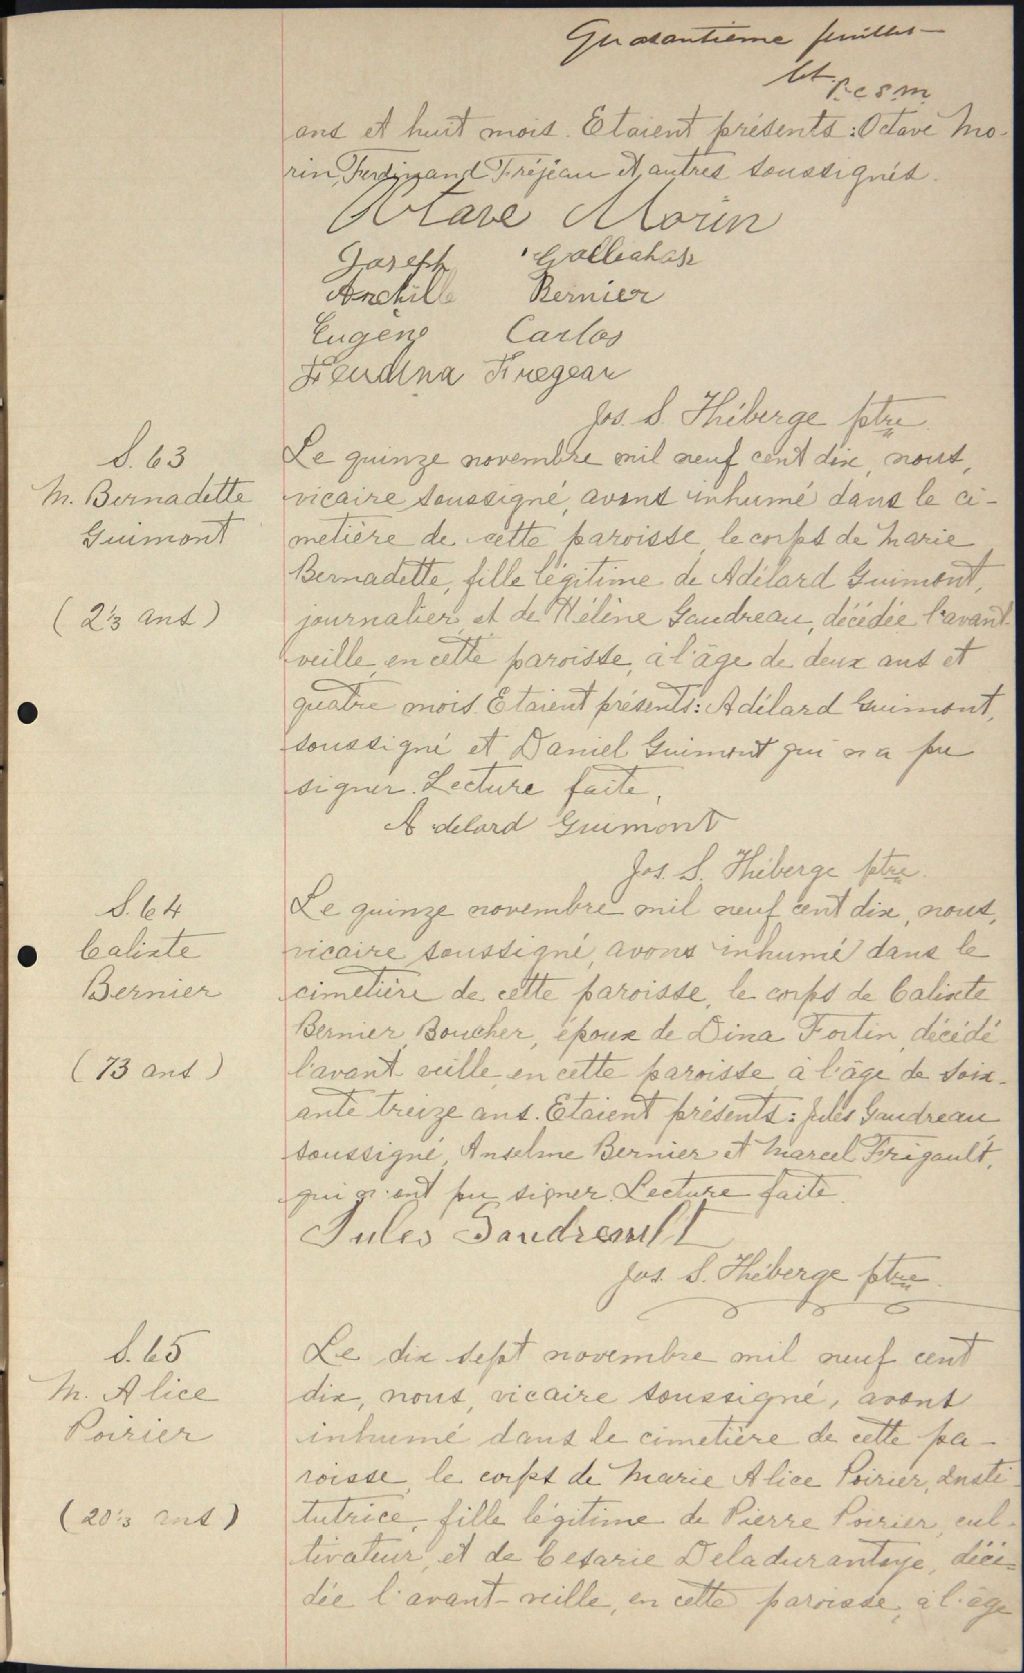 Quarantième feuillet
P.C.S.M.
ans et huit mois. Etaient présents: Octave Mo-
rin, Ferdinand Fréjeau et autres soussignés.
Octave Morin
Joseph
Archille Bernier
Eugène Carlos
Fregeau
Jos. S. Théberge ptre.
S. 63
M. Bernadette
Guimont
(2 1/3 ans)
Le quinze novembre mil neuf cent dix, nous,
vicaire soussigné, avons inhumé dans le ci-
metière de cette paroisse, le corps de Marie
Bernadette, fille légitime de Adélard Guimont,
journalier, et de Hélène Gaudreau, décédée l'avant-
veille, en cette paroisse, à l'âge de deux ans et
quatre mois. Etaient présents: Adélard Guimont,
soussigné et Daniel Guimont qui n'a pu
signer. Lecture faite,
Adelard Guimont
Jos. S. Théberge ptre.
S. 64
Calixte
Bernier
(73 ans)
Le quinze novembre mil neuf cent dix, nous,
vicaire soussigné, avons inhumé dans le
cimetière de cette paroisse, le corps de Calixte
Bernier, Boucher, époux de Dina Fortin, décédé
l'avant veille, en cette paroisse, à l'âge de soix-
ante treize ans. Etaient présents: Jules Gaudreau
soussigné, Anselme Bernier et Marcel Frigault,
qui n'ont pu signer. Lecture faite.
Jules Gaudreault
Jos. S. Théberge ptre.
S. 65
M. Alice
Poirier
(20 1/3 ans)
Le dix sept novembre mil neuf cent
dix, nous, vicaire soussigné, avons
inhumé dans le cimetière de cette pa-
roisse, le corps de Marie Alice Poirier, Insti-
tutrice, fille légitime de Pierre Poirier, cul-
tivateur, et de Cesarie Deladurantaye, décé-
dée l'avant-veille, en cette paroisse, à l'âge